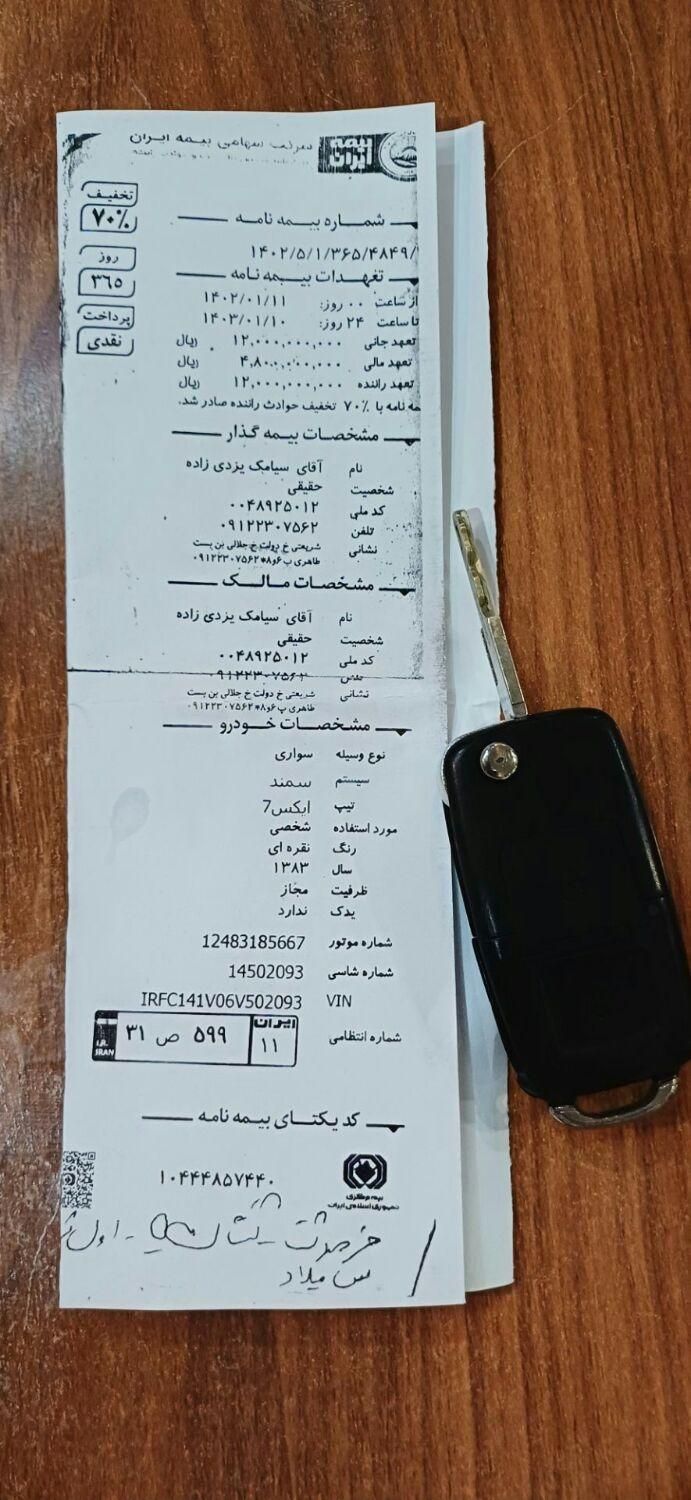 شرکت سهامی بیمه ایران
بیمه ایران
تخفیف
۷۰%
روز
۳۶۵
پرداخت
نقدی
شماره بیمه نامه
۱۴۰۲/۵/۱/۳۶۵/۴۸۴۹/
تعهدات بیمه نامه
از ساعت ۰۰ روز: ۱۴۰۲/۰۱/۱۱
تا ساعت ۲۴ روز: ۱۴۰۳/۰۱/۱۰
تعهد جانی ۱۲,۰۰۰,۰۰۰,۰۰۰ ریال
تعهد مالی ۴,۸۰۰,۰۰۰,۰۰۰ ریال
تعهد راننده ۱۲,۰۰۰,۰۰۰,۰۰۰ ریال
مه نامه با ۷۰% تخفیف حوادث راننده صادر شد.
مشخصات بیمه گذار
نام آقای سیامک یزدی زاده
شخصیت حقیقی
کد ملی ۰۰۴۸۹۲۵۰۱۲
تلفن ۰۹۱۲۲۳۰۷۵۶۲
نشانی شریعتی خ دولت خ جلالی بن بست
طاهری پ ۶و۸*۰۹۱۲۲۳۰۷۵۶۲
مشخصات مالک
نام آقای سیامک یزدی زاده
شخصیت حقیقی
کد ملی ۰۰۴۸۹۲۵۰۱۲
تلفن ۰۹۱۲۲۳۰۷۵۶۲
نشانی شریعتی خ دولت خ جلالی بن بست
طاهری پ ۶و۸*۰۹۱۲۲۳۰۷۵۶۲
مشخصات خودرو
نوع وسیله سواری
سیستم سمند
تیپ ایکس7
مورد استفاده شخصی
رنگ نقره ای
سال ۱۳۸۳
ظرفیت مجاز
یدک ندارد
شماره موتور 12483185667
شماره شاسی 14502093
VIN IRFC141V06V502093
شماره انتظامی
ایران
۱۱
۵۹۹ ص ۳۱
I.R.
IRAN
کد یکتای بیمه نامه
۱۰۴۴۴۸۵۷۴۴۰
بیمه مرکزی
جمهوری اسلامی ایران
میلاد